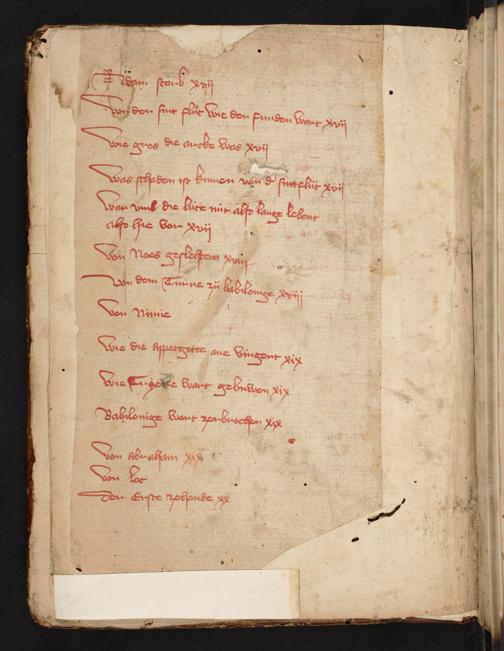 Adam starb xvij
Von der sint fluͦt wie der funden wart xvij
Wie gros die arcke was xvij
Was schaden ist kumen von d' sintfluͦt xvij
War vmb die lüte nit also lange lebent
also hie vor xvij
Von Noes geslehten xviij
Von dem Turne zü babilonige xviij
Von Ninie
Wie die appetgotte ane vingent xix
Wie wart gebuwen xix
Babilonige wart zerbrochen xix
Von Abraham xix
Von lot
Der Erste zehende xx